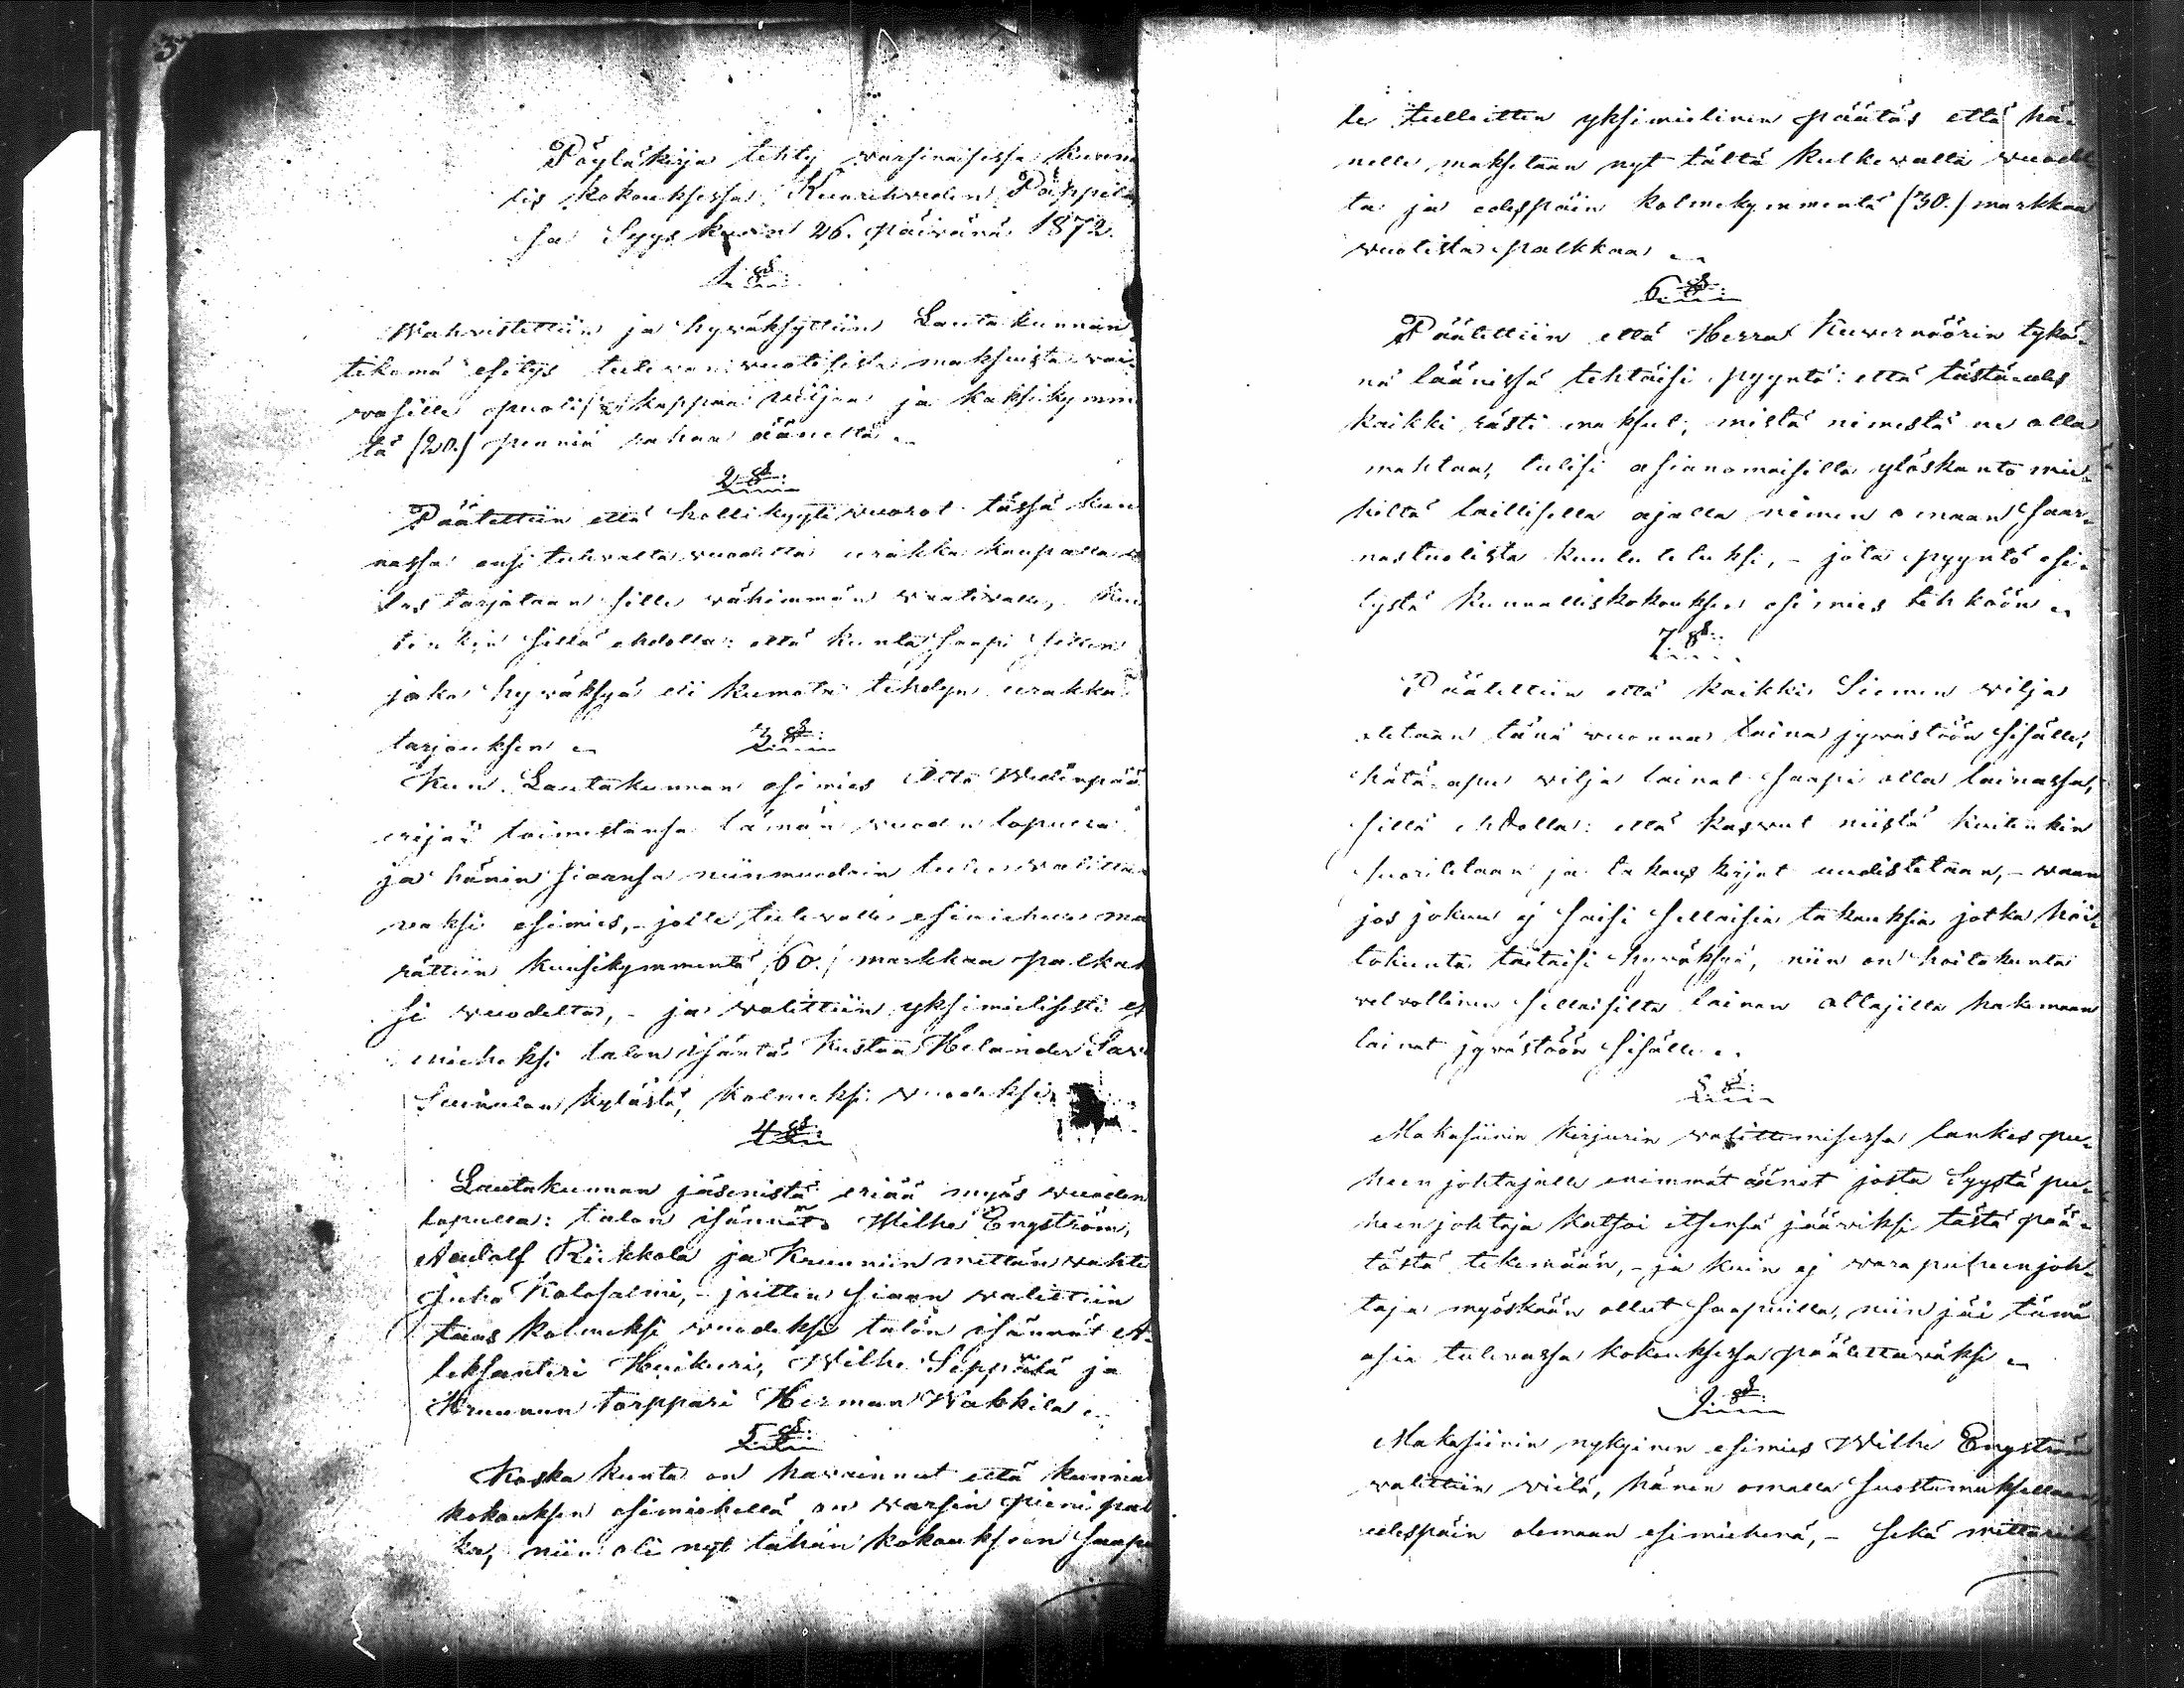 3
Pöytäkirja tehty warsinaisessa kunna
lis kokouksessa, Kuorehweden Pappila
sa Syys kuun 26. päiwänä 1872.
1 §:
Wahwistettiin ja hywäksyttiin Lautakunnan
tekemä esitys tulewan wuotisista maksuista wai-
wasille puolis kappaa wiljaa ja kaksikymm
tä (20.) penniä rahaa äänellä
2 §:
Päätettiin että hollikyyti wuorot tässä kun
nassa ensi tulewalta wuodelta urakka kaupalla
tarjotaan sille wähimmän waatiwalle, kui
tenkin sillä ehdolla: että kunta saapi sitten
joko hywäksyä eli kumota tehdyn urakka
tarjouksen
3 §:
Kun Lautakunnan esimies Otto Wedenpää
erijää toimestansa tämän wuoden lopussa
ja hänen siaansa niinmuodoin tulee walitta
waksi esimies, - jolle tulewalle esimiehelle mä
rättiin kuusikymmentä (60.) markkaa palkak
si wuodelta, - ja walittiin yksimielisesti es
mieheksi talon isäntä Kustaa Helander Sa
Suinulan kylästä, kolmeksi wuodeksi
4 §:
Lautakunnan jäsenistä eriää myös wuoden
lopulla: talon isännät Wilhe Engström,
Aadolf Rikkola ja Kruunun mettän wahti
Juho Kolosalmi, - joitten siaan walittiin
taas kolmeksi wuodeksi talon isännät A-
leksanteri Huikuri, Wilhe Seppälä ja
Kruunun torppari Herman Wakkila
5 §:
Koska kunta on hawainnut että kunna
kokouksen esimiehellä on warsin pieni pal
ka, niin oli nyt tähän kokoukseen saapu
le tulleitten yksimielinen päätös että hä-
nelle maksetaan nyt tältä kulkewalta wuodel
ta ja edespäin kolmekymmentä (30.) markkaa
wuotista palkkaa
6 §:
Päätettiin että Herra Kuwernöörin tykö-
nä läänissä tehtäisi pyyntö: että tästäedes
kaikki rästi maksut, mistä nimestä ne olla
mahtaa, tulisi asianomaisilla ylöskanto mie-
hiltä laillisella ajalla nimen omaan saar-
nastuolista kuulutetuksi, - jota pyyntö esi-
tystä kunnalliskokouksen esimies tehköön
7 §:
Päätettiin että kaikki Siemen wilja
otetaan tänä wuonna laina jywästöön sisälle,
hätä-apu wilja lainat saapi olla lainassa,
sillä ehdolla: että kaswut niistä kuitenkin
suoritetaan ja takaus kirjat uudistetaan, - waan
jos joku ej saisi sellaisia takauksia jotka hoi-
tokunta taitaisi hywäksyä, niin on hoitokunta
welwollinen sellaisilta lainan ottajilta hakemaan
lainat jywästöön sisälle
8 §:
Makasiinin kirjurin walittemisessa lankes pu-
heen johtajalle enimmät äänet josta Syystä pu-
heen johtaja katsoi itsensä jääwiksi tästä pää-
töstä tekemään, - ja kuin ej warapuheenjoh-
taja myöskään ollut saapuilla, niin jäi tämä
asia tulewassa kokouksessa päätettäwäksi
9 §:
Makasiinin nykyinen esimies Wilhe Engström
walittiin wielä, hänen omalla suostumuksellaan,
edespäin olemaan esimiehenä, - Sekä mittarik